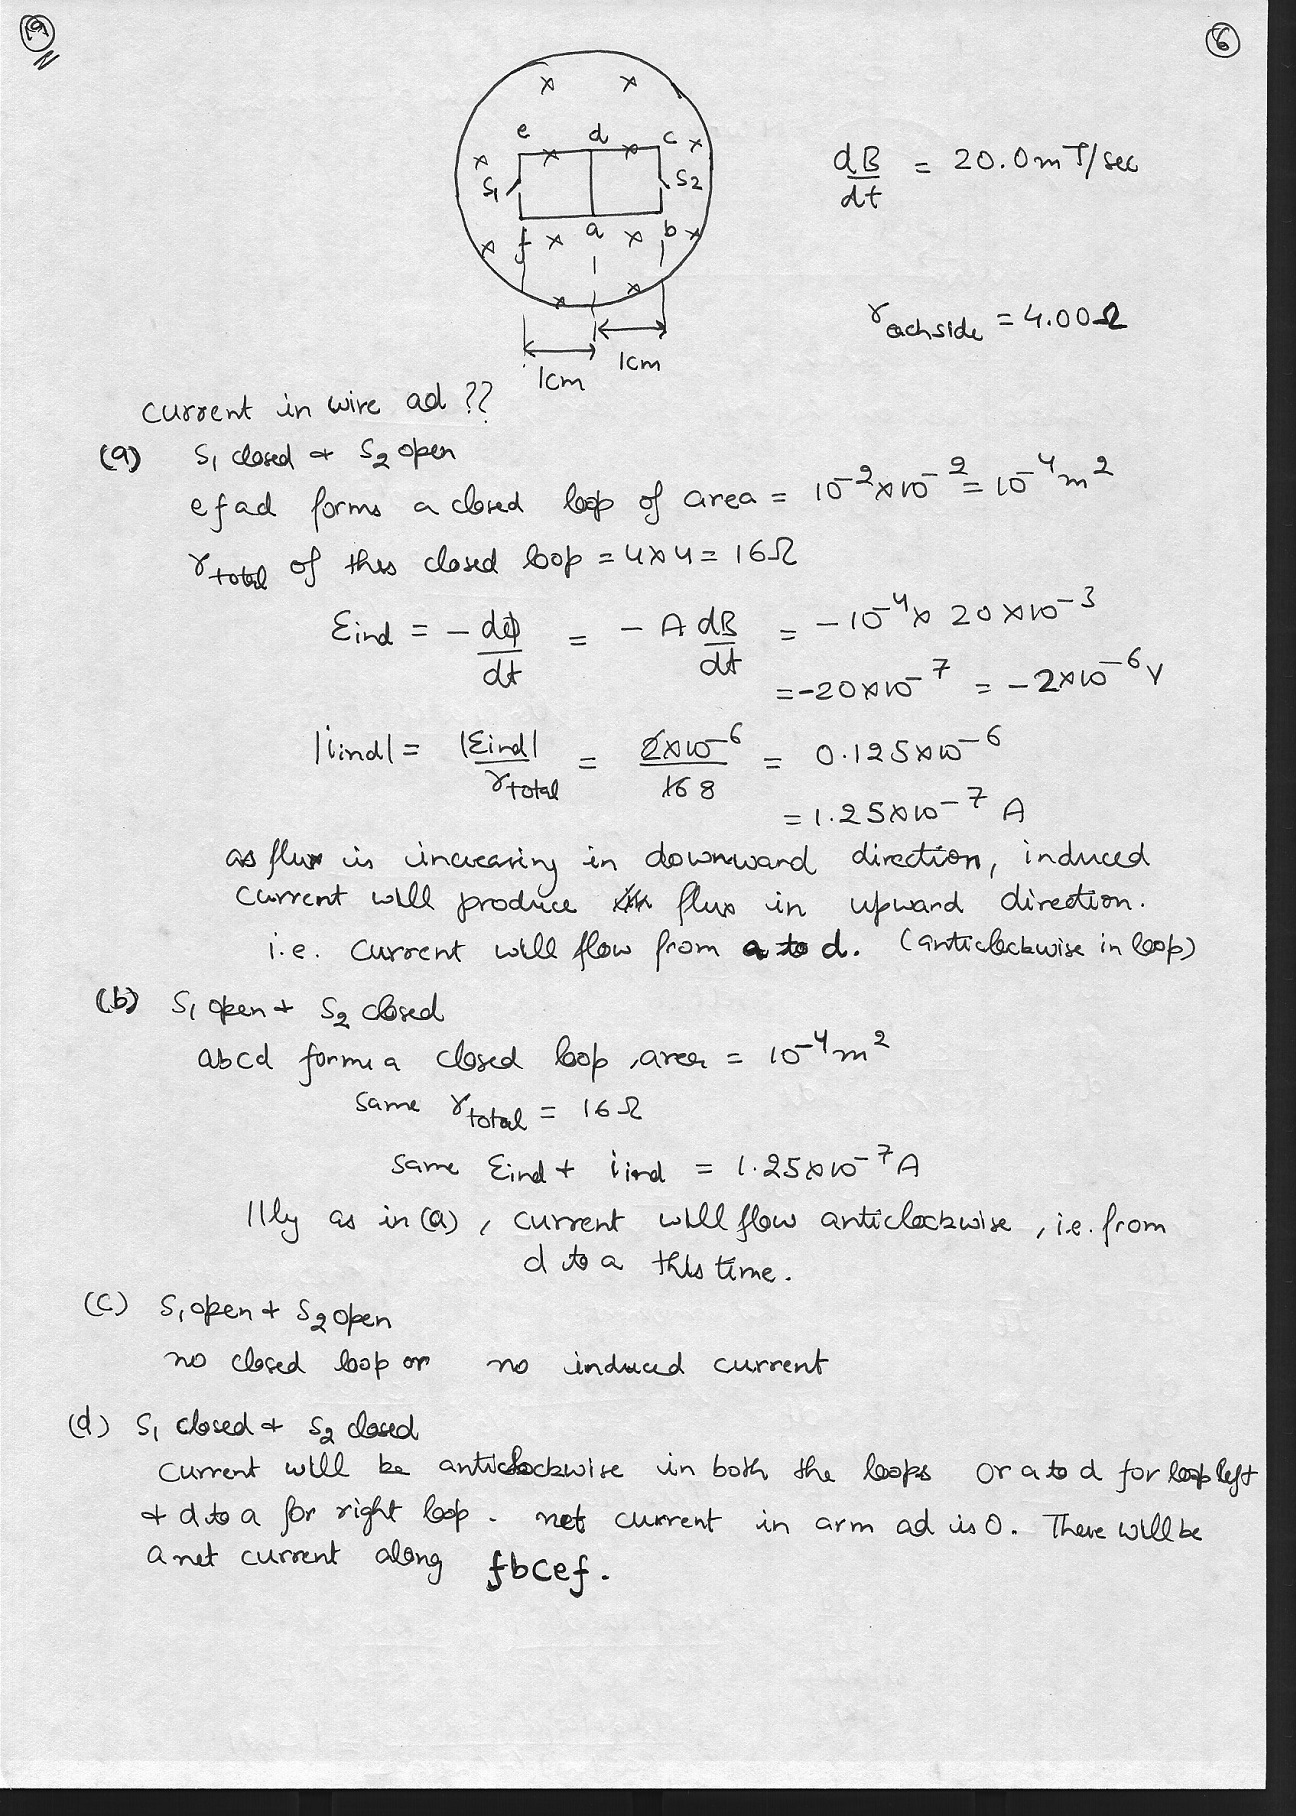 19
N
6
e d c
S1 S2
f a b
1cm
1cm
dB/dt = 20.0 mT/sec
r each side = 4.00Ω
current in wire ad ??
(a) S1 closed + S2 open
efad forms a closed loop of area = 10^-2 × 10^-2 = 10^-4 m^2
r total of this closed loop = 4×4 = 16Ω
Eind = - dφ/dt = - A dB/dt = - 10^-4 × 20×10^-3
= -20×10^-7 = -2×10^-6 V
|iind| = |Eind|/r total = 2×10^-6/16 8 = 0.125×10^-6
= 1.25×10^-7 A
as flux is increasing in downward direction, induced
current will produce flux in upward direction.
i.e. current will flow from a to d. (anticlockwise in loop)
(b) S1 open + S2 closed
abcd forms a closed loop, area = 10^-4 m^2
same r total = 16Ω
same Eind + iind = 1.25×10^-7 A
||ly as in (a), current will flow anticlockwise, i.e. from
d to a this time.
(c) S1 open + S2 open
no closed loop or no induced current
(d) S1 closed + S2 closed
current will be anticlockwise in both the loops or a to d for loop left
+ d to a for right loop. net current in arm ad is 0. There will be
a net current along fbcef.